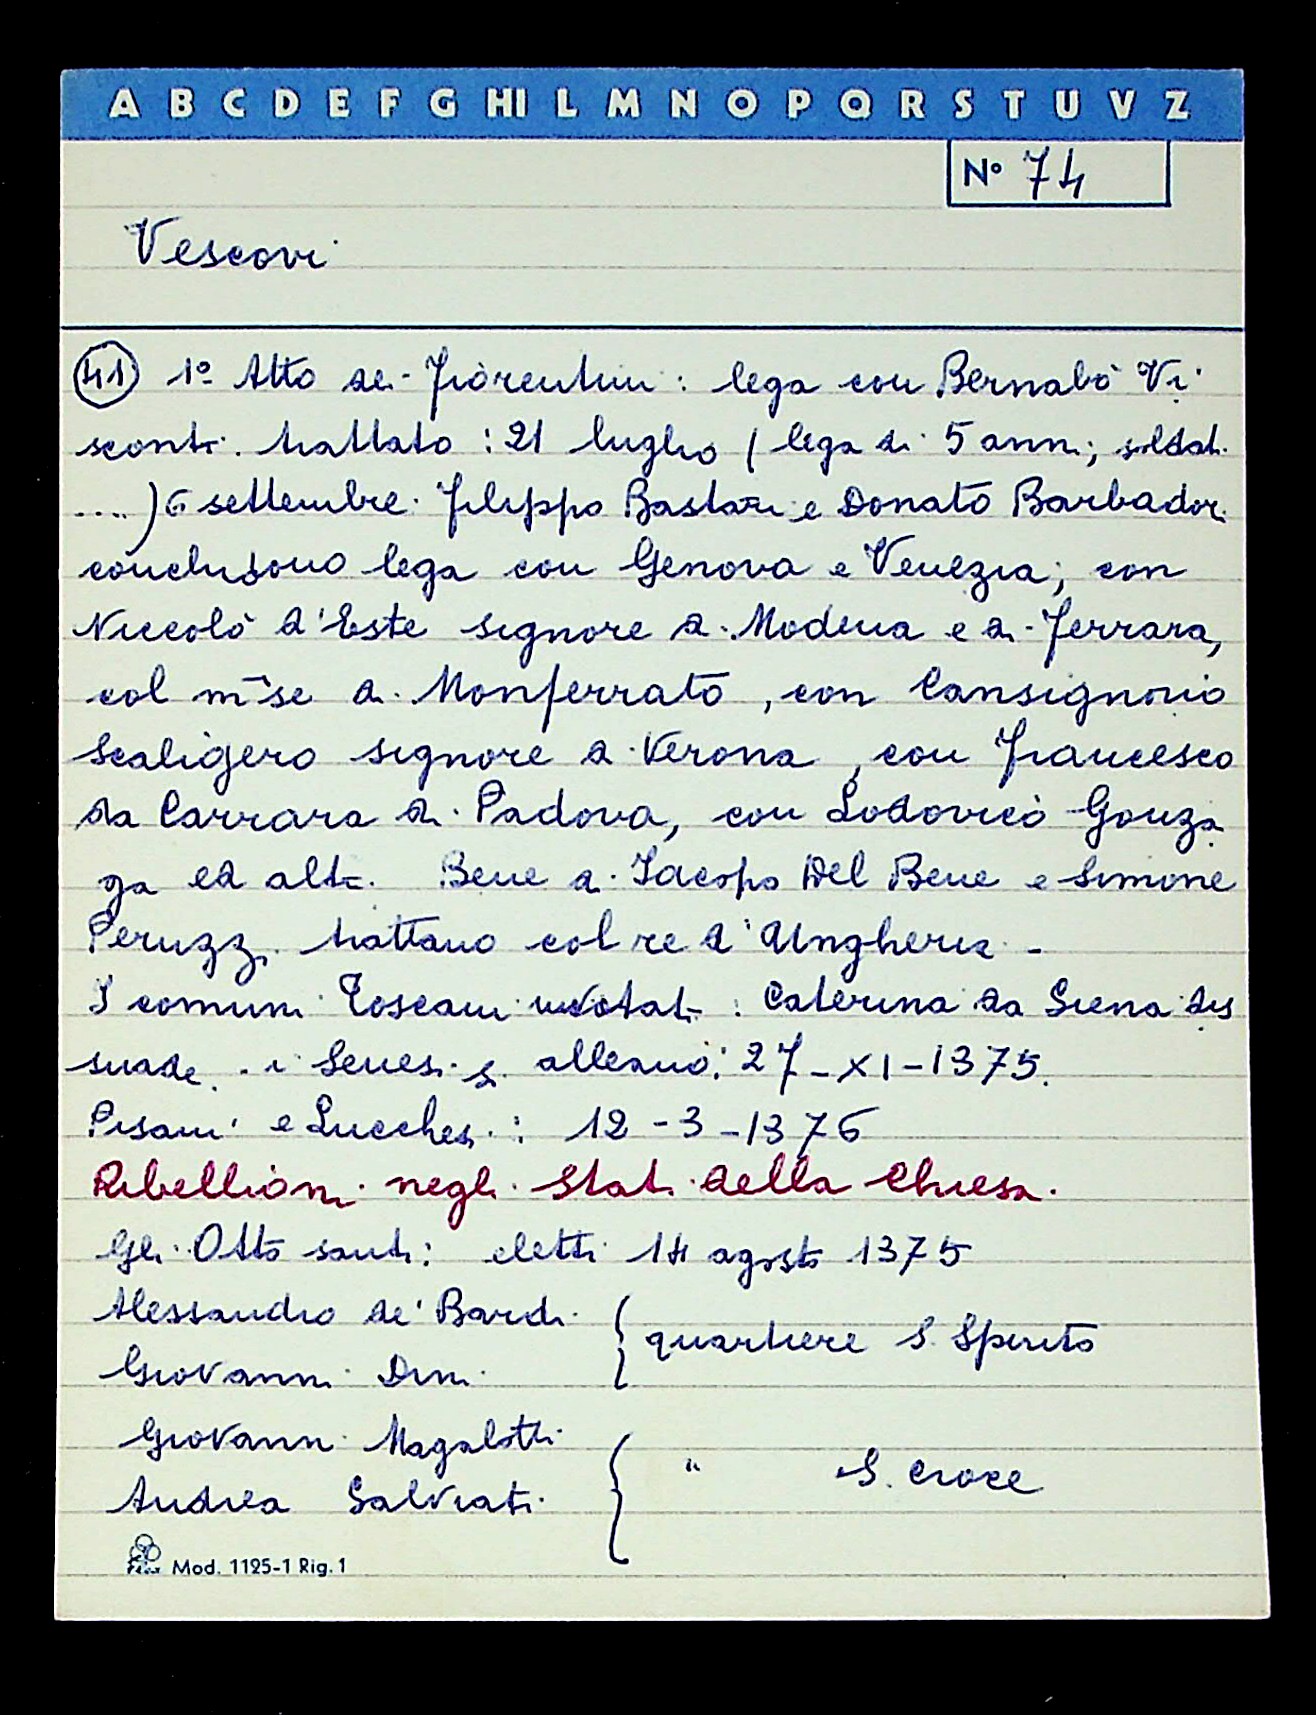 A B C D E F G HI L M N O P Q R S T U V Z
N° 74
Vescovi
41 1° Atto dei Fiorentini: lega con Bernabò Vi
sconti. trattato: 21 luglio (lega di 5 anni; soldati
....) 6 settembre. Filippo Bastari e Donato Barbadori
concludono lega con Genova e Venezia; con
Niccolò d'Este signore di Modena e di Ferrara,
col m̅se di Monferrato, con Cansignorio
Scaligero signore di Verona, con Francesco
da Carrara di Padova, con Lodovico Gonza
ga ed altri. Bene di Iacopo Del Bene e Simone
Peruzzi trattano col re d'Ungheria -
I comuni Toscani invitati: Caterina da Siena dis
suade i Senesi. si alleano: 27-XI-1375.
Pisani e Lucchesi: 12-3-1376
Ribellioni negli stati della Chiesa.
Gli Otto santi: eletti 14 agosto 1375
Alessandro de' Bardi
Giovanni Dini
{ quartiere S. Spirito
Giovanni Magalotti
Andrea Salviati
{ " S. Croce
Mod. 1125-1 Rig. 1